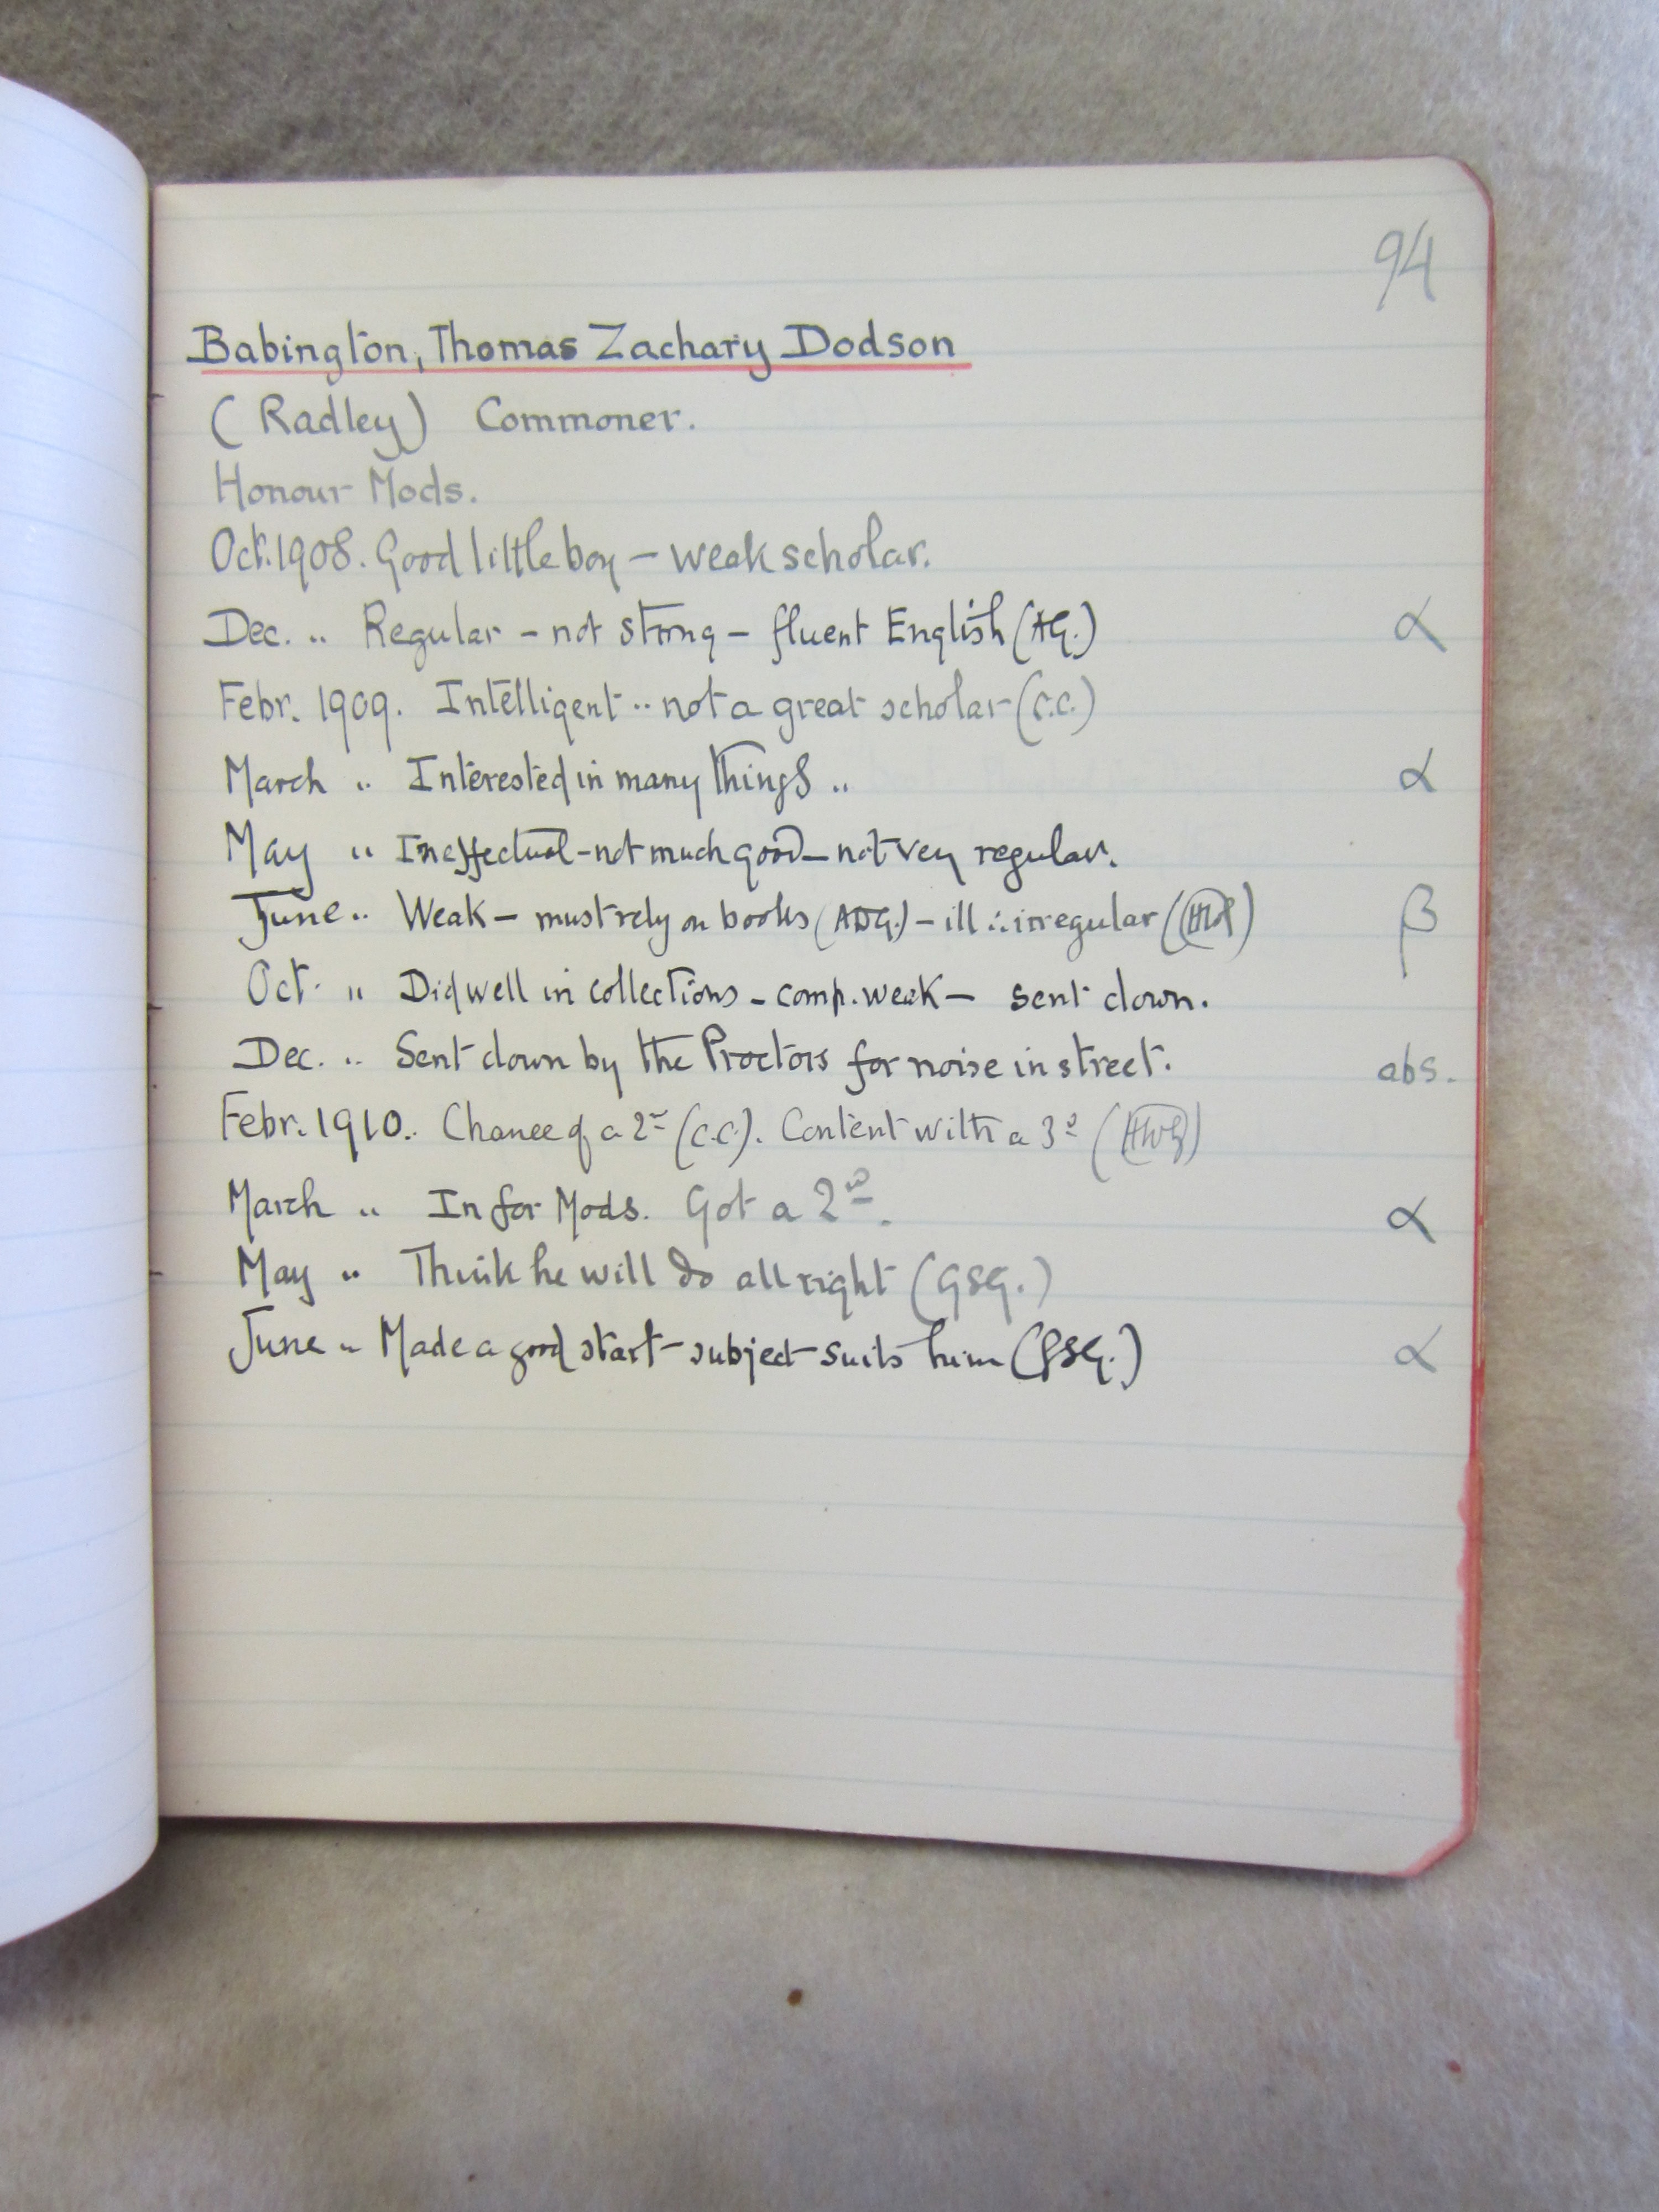 94
Babington, Thomas Zachary Dodson
(Radley) Commoner.
Honour Mods.
Oct. 1908. Good little boy – weak scholar.
Dec. ,, Regular – not strong – fluent English (AG.) α
Febr. 1909. Intelligent ,, not a great scholar (C.C.)
March ,, Interested in many things ,, α
May ,, Ineffectual – not much good – not very regular.
June ,, Weak – must rely on books (ADG.) – ill ∴ irregular β
Oct. ,, Did well in collections – comp. weak – sent down.
Dec. ,, Sent down by the Proctors for noise in street. abs.
Febr. 1910. Chance of a 2nd (C.C.). Content with a 3d
March ,, In for Mods. Got a 2nd. α
May ,, Think he will do all right (GSG.)
June ,, Made a good start – subject suits him (GSG.) α